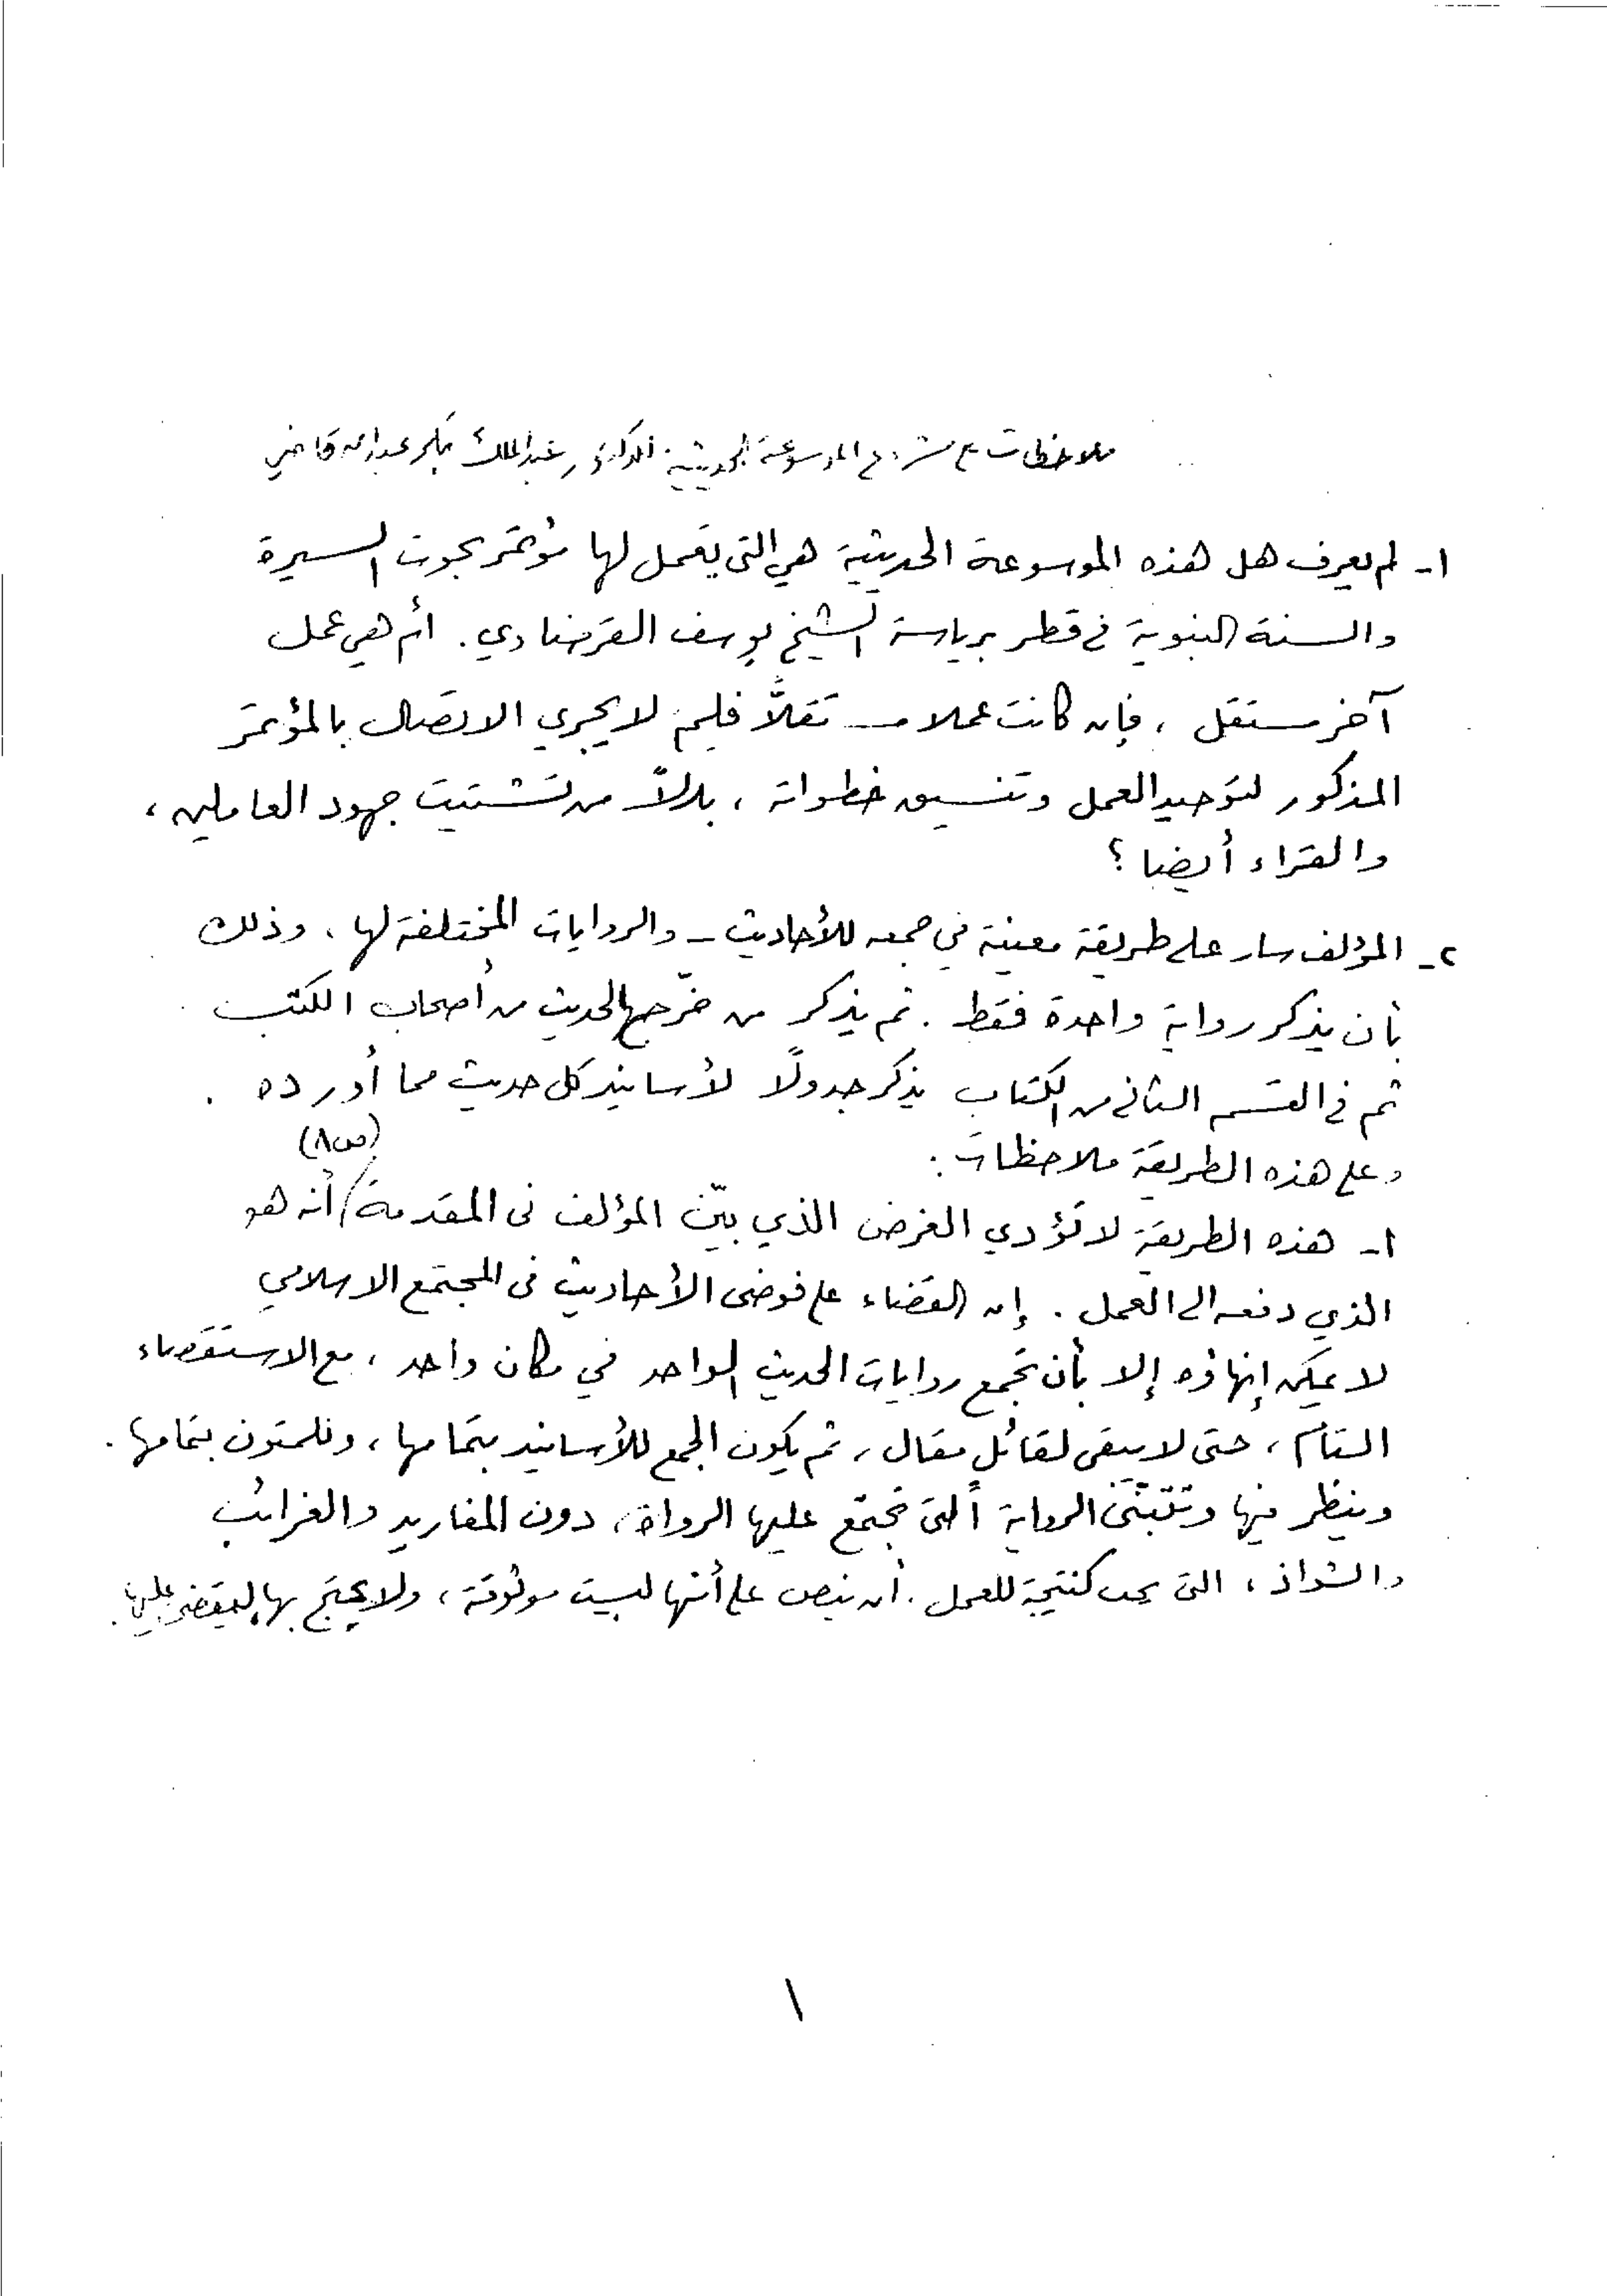 ملاحظات على مشروع الموسوعة الحديثية للدكتور عبدالملك بكر عبدالله قاضي
١- لم يعرف هل هذه الموسوعة الحديثية هي التي يعمل لها مؤتمر بحوث السيرة
والسنة النبوية في قطر برياسة الشيخ يوسف القرضاوي. أم هي عمل
آخر مستقل ، فإن كانت عملا مستقلاً فلِمَ لا يجري الاتصال بالمؤتمر
المذكور لتوحيد العمل وتنسيق خطواته ، بدلاً من تشتيت جهود العاملين ،
والقراء أيضا ؟
٢- المؤلف سار على طريقة معينة في جمعه للأحاديث - والروايات المختلفة لها ، وذلك
بأن يذكر رواية واحدة فقط . ثم يذكر من خرّج الحديث من أصحاب الكتب
ثم في القسم الثاني من الكتاب يذكر جدولًا لأسانيد كل حديث مما أورده .
وعلى هذه الطريقة ملاحظات :
(ص٨)
١- هذه الطريقة لا تؤدي الغرض الذي بيّن المؤلف في المقدمة / أنه هو
الذي دفعه الى العمل . إن القضاء على فوضى الأحاديث في المجتمع الاسلامي
لا يمكن إنهاؤه إلا بأن تجمع روايات الحديث الواحد في مكان واحد ، مع الاستقصاء
التام ، حتى لا يبقى لقائل مقال ، ثم يكون الجمع للأسانيد بتمامها ، وللمتون بتمامها .
وينظر فيها وتتبنى الرواية التي تجتمع عليها الرواة ، دون المفاريد والغرائب
والشواذ ، التي يجب كنتيجة للعمل . أن ينص على أنها ليست موثوقة ، ولا يحتج بها ليقضى عليها .
١